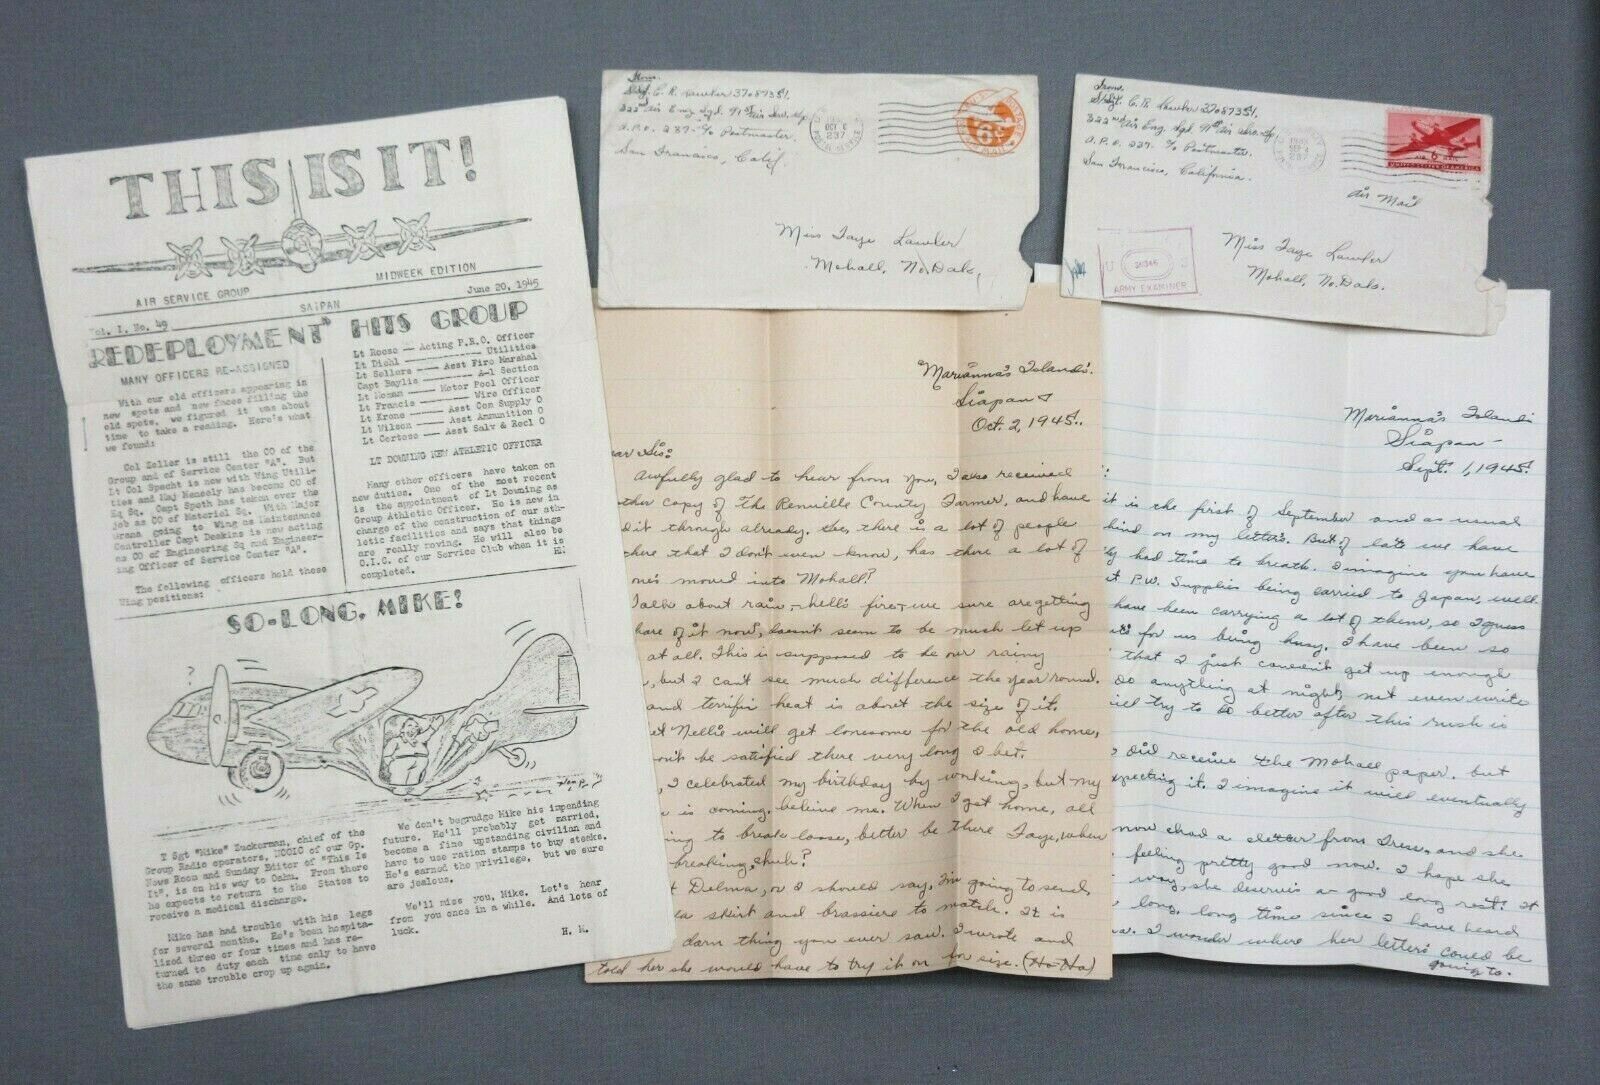 THIS IS IT!
MIDWEEK EDITION
AIR SERVICE GROUP
SAIPAN
June 20, 1945
Vol. I, No. 49
"REDEPLOYMENT" HITS GROUP
MANY OFFICERS RE-ASSIGNED
With our old officers appearing in
new spots and new faces filling the
old spots, we figured it was about
time to take a reading. Here's what
we found:
Col Zeller is still the CO of the
Group and of Service Center "A". But
Lt Col Specht is now with Wing Utili-
ties and Maj Keneely has become CO of
Hq Sq. Capt Speth has taken over the
job as CO of Materiel Sq. With Major
Grana going to Wing as Maintenance
Controller Capt Deakins is now acting
as CO of Engineering Sq and Engineer-
ing Officer of Service Center "A".
The following officers hold these
Wing positions:
Lt Roose — Acting P.R.O. Officer
Lt Diehl — Utilities
Lt Sellers — Asst Fire Marshal
Capt Baylis — A-1 Section
Lt Moman — Motor Pool Officer
Lt Francis — Wire Officer
Lt Krone — Asst Com Supply O
Lt Wilson — Asst Ammunition O
Lt Certoso — Asst Salv & Recl O
LT DOWNING NEW ATHLETIC OFFICER
Many other officers have taken on
new duties. One of the most recent
is the appointment of Lt Downing as
Group Athletic Officer. He is now in
charge of the construction of our ath-
letic facilities and says that things
are really moving. He will also be
O.I.C. of our Service Club when it is
completed.
SO-LONG, MIKE!
?
T Sgt "Mike" Zuckerman, chief of the
Group Radio operators, NCOIC of our Gp.
News Room and Sunday Editor of "This Is
It", is on his way to Oahu. From there
he expects to return to the States to
receive a medical discharge.
Mike has had trouble with his legs
for several months. He's been hospita-
lized three or four times and has re-
turned to duty each time only to have
the same trouble crop up again.
We don't begrudge Mike his impending
future. He'll probably get married,
become a fine upstanding civilian and
have to use ration stamps to buy steaks.
He's earned the privilege, but we sure
are jealous.
We'll miss you, Mike. Let's hear
from you once in a while. And lots of
luck.
H. M.
From.
S/Sgt. C. R. Lawler 37087351.
322nd Air Eng Sqd. 91st Air Serv. Gp
A.P.O. 237- c/o Postmaster.
San Francisco, Calif.
OCT 6
237
6¢
Miss Faye Lawler
Mohall, No. Dak.
From.
S/Sgt. C. R. Lawler 37087351.
322nd Air Eng Sqd. 91st Air Serv. Gp.
A.P.O. 237- c/o Postmaster.
San Francisco, California.
SEP 4
237
AIR 6¢ MAIL
UNITED STATES OF AMERICA
Air Mail
Miss Faye Lawler
Mohall, No. Dak.
U S
ARMY EXAMINER
Marianna's Islands.
Siapan
Oct. 2, 1945.
ear Sis:
Awfully glad to hear from you, I also received
ther copy of The Renville County Farmer, and have
d it through already. Gee, there is a lot of people
there that I don't even know, has there a lot of
one's moved into Mohall?
Talk about rain, - hell's fire, - we sure are getting
hare of it now, doesn't seem to be much let up
at all. This is supposed to be our rainy
, but I can't see much difference the year round.
and terrific heat is about the size of it.
et Nellie will get lonesome for the old home,
on't be satisfied there very long I bet.
, I celebrated my birthday by working, but my
is coming, believe me. When I get home, all
ing to break loose, better be there Faye, when
breaking, huh?
t Delma, or I should say, I'm going to send,
a skirt and brassiere to match. It is
darn thing you ever saw. I wrote and
told her she would have to try it on for size. (Ho-Ho)
Marianna's Islands
Siapan -
Sept. 1, 1945.
:
it is the first of September and as usual
hind on my letters. But of late we have
ly had time to breath. I imagine you have
t P.W. Supplies being carried to Japan, well
have been carrying a lot of them, so I guess
for us being busy. I have been so
that I just couldn't get up enough
do anything at night, not even write
will try to do better after this rush is
did receive the Mohall paper, but
xpecting it. I imagine it will eventually
now had a letter from Tress, and she
feeling pretty good now. I hope she
way, she deserves a good long rest. It
long, long time since I have heard
ma. I wonder where her letters could be
going to.